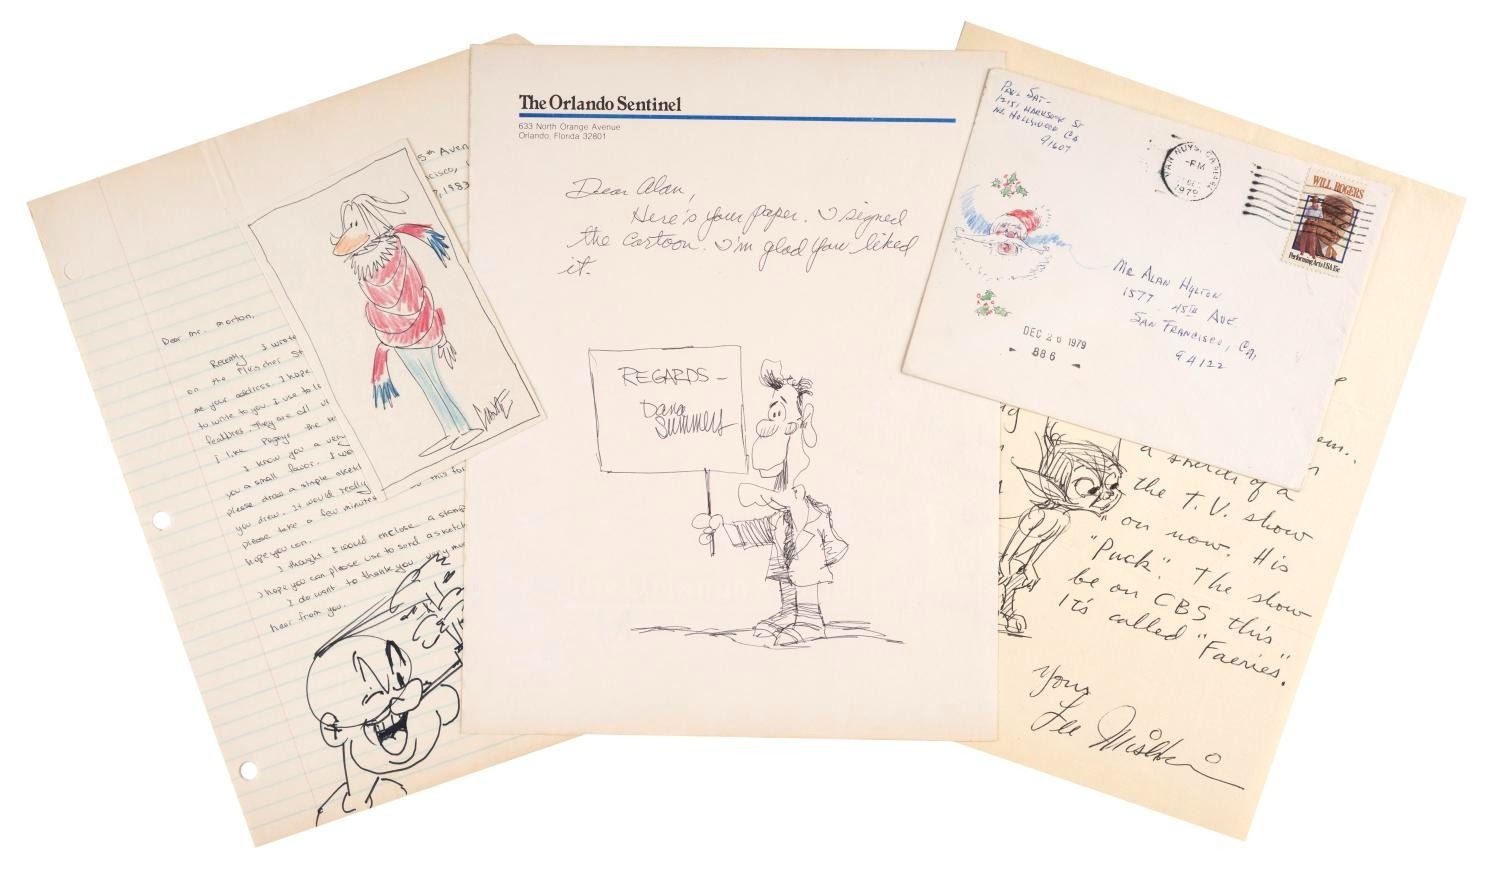 5th Aven
cisco,
, 1983
Dear Mr. Morton,
Recently I wrote
on the Fleischer St
me your address. I hope
to write to you. I use to lo
features. They are all
I like Popeye the
I know you a very
you a small favor. I wo
please draw a simple sketch
you drew. It would really
please take a few minutes to this for
hope you can.
I thought I would enclose a stamp
I hope you can please use to send a sketch
I do want to thank you very mu
hear from you.
The Orlando Sentinel
633 North Orange Avenue
Orlando, Florida 32801
Dear Alan,
Here's your paper. I signed
the cartoon. I'm glad you liked
it.
REGARDS -
Dana
Summers
Paul
No. Hollywood Ca
91607
VAN NUYS, CA
-PM
1979
WILL ROGERS
Performing Arts USA 15c
Mr Alan Hylton
1577 45th Ave.
San Francisco, Ca,
94122
DEC 26 1979
886
em..
a sketch of a
the T.V. show
on now. His
"Puck". The show
be on CBS this
It's called "Faeries."
Yours
Lee Mishkin